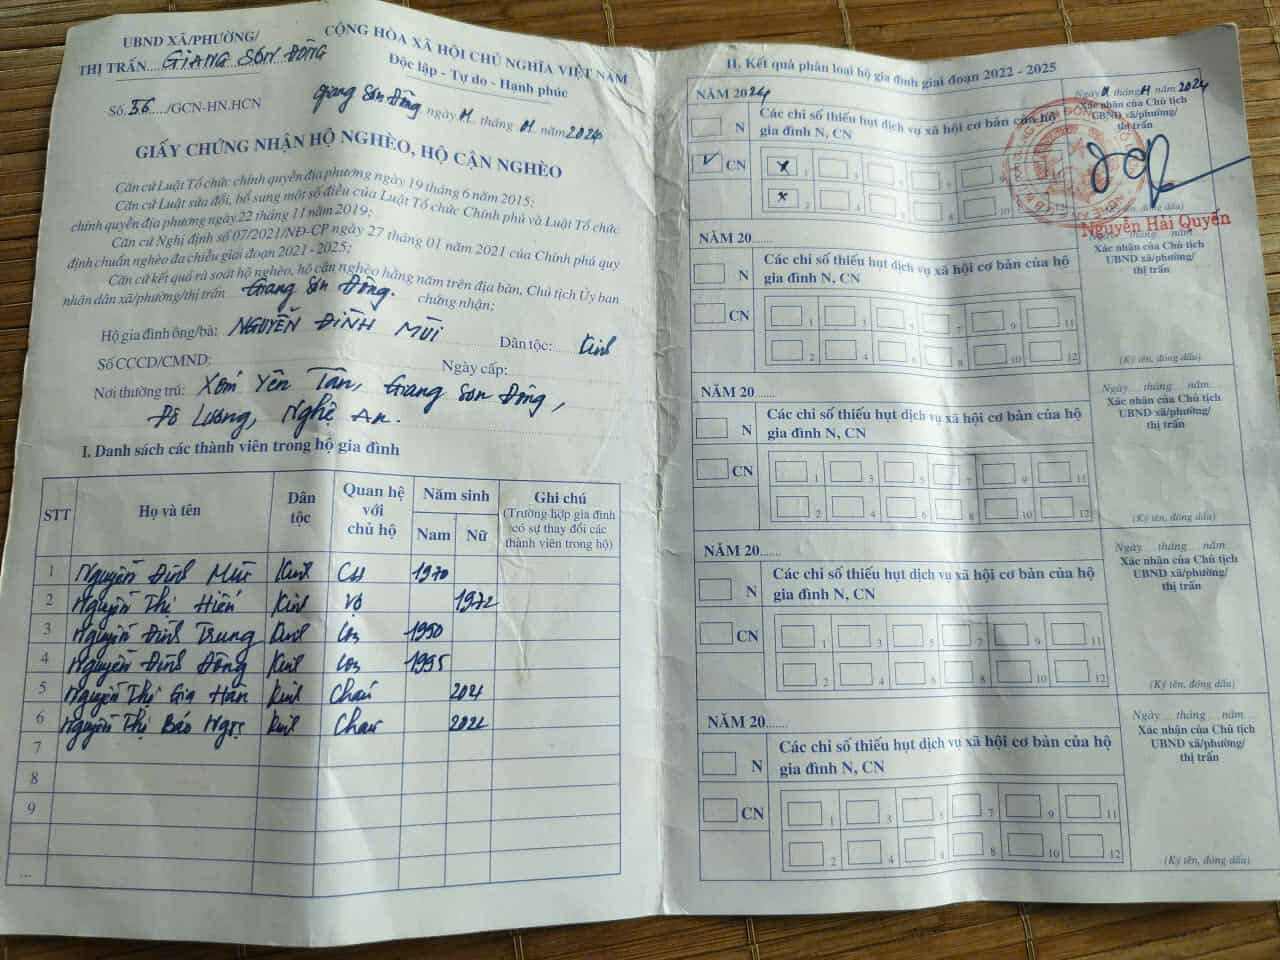 UBND XÃ/PHƯỜNG/
THỊ TRẤN.... GIANG SƠN ĐÔNG
CỘNG HÒA XÃ HỘI CHỦ NGHĨA VIỆT NAM
Độc lập - Tự do - Hạnh phúc
Số: 56 ..../GCN-HN.HCN
Giang Sơn Đông, ngày 11 tháng 11 năm 2024
GIẤY CHỨNG NHẬN HỘ NGHÈO, HỘ CẬN NGHÈO
Căn cứ Luật Tổ chức chính quyền địa phương ngày 19 tháng 6 năm 2015;
Căn cứ Luật sửa đổi, bổ sung một số điều của Luật Tổ chức Chính phủ và Luật Tổ chức
chính quyền địa phương ngày 22 tháng 11 năm 2019;
Căn cứ Nghị định số 07/2021/NĐ-CP ngày 27 tháng 01 năm 2021 của Chính phủ quy
định chuẩn nghèo đa chiều giai đoạn 2021 - 2025;
Căn cứ kết quả rà soát hộ nghèo, hộ cận nghèo hằng năm trên địa bàn, Chủ tịch Ủy ban
nhân dân xã/phường/thị trấn Giang Sơn Đông. chứng nhận;
Hộ gia đình ông/bà: NGUYỄN ĐÌNH MÙI Dân tộc: Kinh
Số CCCD/CMND: Ngày cấp:
Nơi thường trú: Xóm Yên Tân, Giang Sơn Đông,
Đô Lương, Nghệ An.
I. Danh sách các thành viên trong hộ gia đình
STT Họ và tên Dân tộc Quan hệ với chủ hộ Năm sinh Nam Nữ Ghi chú (Trường hợp gia đình có sự thay đổi các thành viên trong hộ)
1 Nguyễn Đình Mùi Kinh CH 1970
2 Nguyễn Thị Hiến Kinh Vợ 1972
3 Nguyễn Đình Trung Kinh Con 1990
4 Nguyễn Đình Đông Kinh Con 1995
5 Nguyễn Thị Gia Hân Kinh Cháu 2021
6 Nguyễn Thị Bảo Ngọc Kinh Cháu
7
8
9
...
II. Kết quả phân loại hộ gia đình giai đoạn 2022 - 2025
NĂM 2024
N
✓ CN
Các chỉ số thiếu hụt dịch vụ xã hội cơ bản của hộ
gia đình N, CN
x 1 3 5 7 9
x 2 4 6 8 10
Ngày 11 tháng 11 năm 2024
Xác nhận của Chủ tịch
UBND xã/phường/
thị trấn
Nguyễn Hải Quyến
NĂM 20.......
N
CN
Các chỉ số thiếu hụt dịch vụ xã hội cơ bản của hộ
gia đình N, CN
1 3 5 7 9 11
2 4 6 8 10 12
Xác nhận của Chủ tịch
UBND xã/phường/
thị trấn
(Ký tên, đóng dấu)
NĂM 20.......
N
CN
Các chỉ số thiếu hụt dịch vụ xã hội cơ bản của hộ
gia đình N, CN
1 3 5 7 9 11
2 4 6 8 10 12
Ngày tháng năm
Xác nhận của Chủ tịch
UBND xã/phường/
thị trấn
(Ký tên, đóng dấu)
NĂM 20.......
N
CN
Các chỉ số thiếu hụt dịch vụ xã hội cơ bản của hộ
gia đình N, CN
1 3 5 7 9 11
2 4 6 8 10 12
Ngày tháng năm
Xác nhận của Chủ tịch
UBND xã/phường/
thị trấn
(Ký tên, đóng dấu)
NĂM 20.......
N
CN
Các chỉ số thiếu hụt dịch vụ xã hội cơ bản của hộ
gia đình N, CN
1 3 5 7 9 11
2 4 6 8 10 12
Ngày tháng năm
Xác nhận của Chủ tịch
UBND xã/phường/
thị trấn
(Ký tên, đóng dấu)